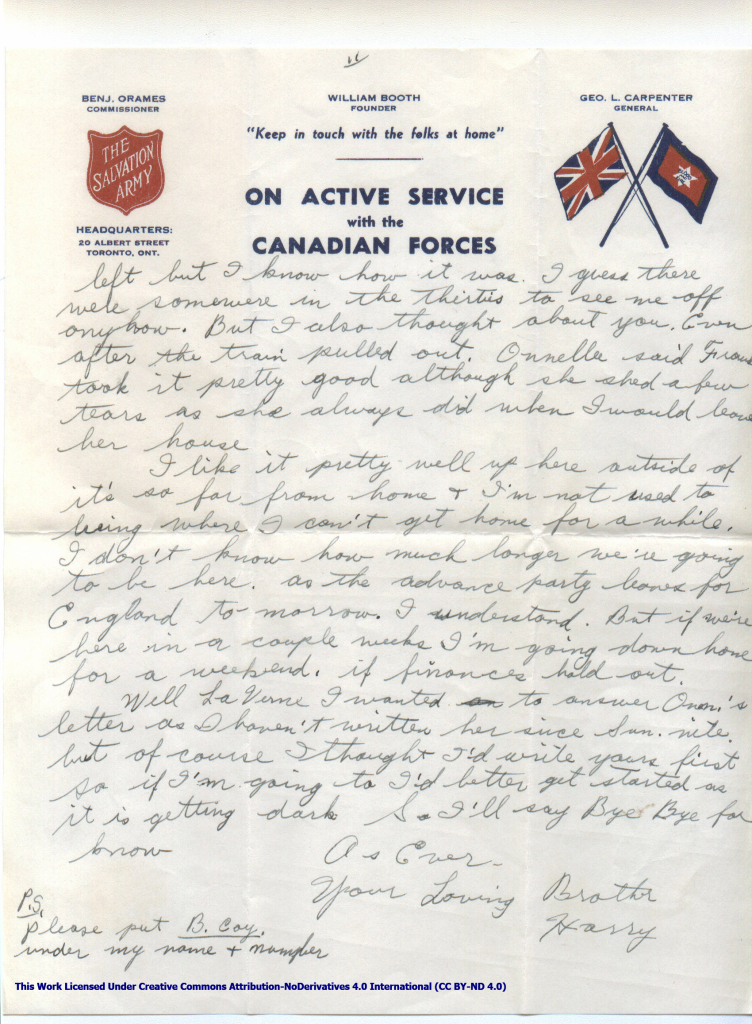 BENJ. ORAMES
COMMISSIONER
WILLIAM BOOTH
FOUNDER
GEO. L. CARPENTER
GENERAL
"Keep in touch with the folks at home"
THE
SALVATION
ARMY
ON ACTIVE SERVICE
with the
CANADIAN FORCES
HEADQUARTERS:
20 ALBERT STREET
TORONTO, ONT.
left but I know how it was. I guess there
were somewere in the thirtis to see me off
anyhow. But I also thought about you. Even
after the train pulled out. Onnellee said
took it pretty good although she shed a few
tears as she always did when I would leave
her house
I like it pretty well up here outside of
it's so far from home + I'm not used to
being where I can't get home for a while.
I don't know how much longer we're going
to be here. as the advance party leaves for
England to-morrow. I understand. But if we're
here in a couple weeks I'm going down home
for a weekend. if finances hold out.
Well LaVerne I wanted to answer Onn.'s
letter as I haven't written her since Sun. nite.
but of course I thought I'd write yours first
so if I'm going to I'd better get started as
it is getting dark So I'll say Bye Bye for
know
As Ever-
Your Loving Brother
Harry
P.S.
Please put B. Coy.
under my name + number
This Work Licensed Under Creative Commons Attribution-NoDerivatives 4.0 International (CC BY-ND 4.0)